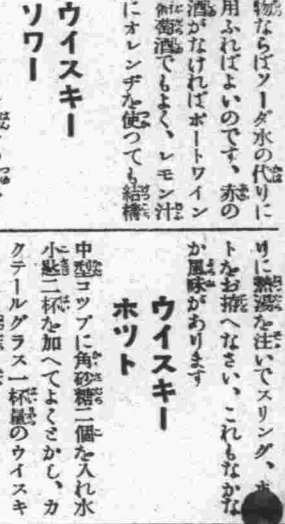 物ならばソーダ水の代りに
用ふればよいのです、赤の
酒がなければポートワイン
葡萄酒でもよく、レモン汁
にオレンヂを使つても結構
ウイスキー
ソワー
りに熱湯を注いでスリング、ホ
トをお拵へなさい、これもなかな
か風味があります
ウイスキー
ホツト
中型コツプに角砂糖二個を入れ水
小匙二杯を加へてよくとかし、カ
クテールグラス一杯量のウイスキ